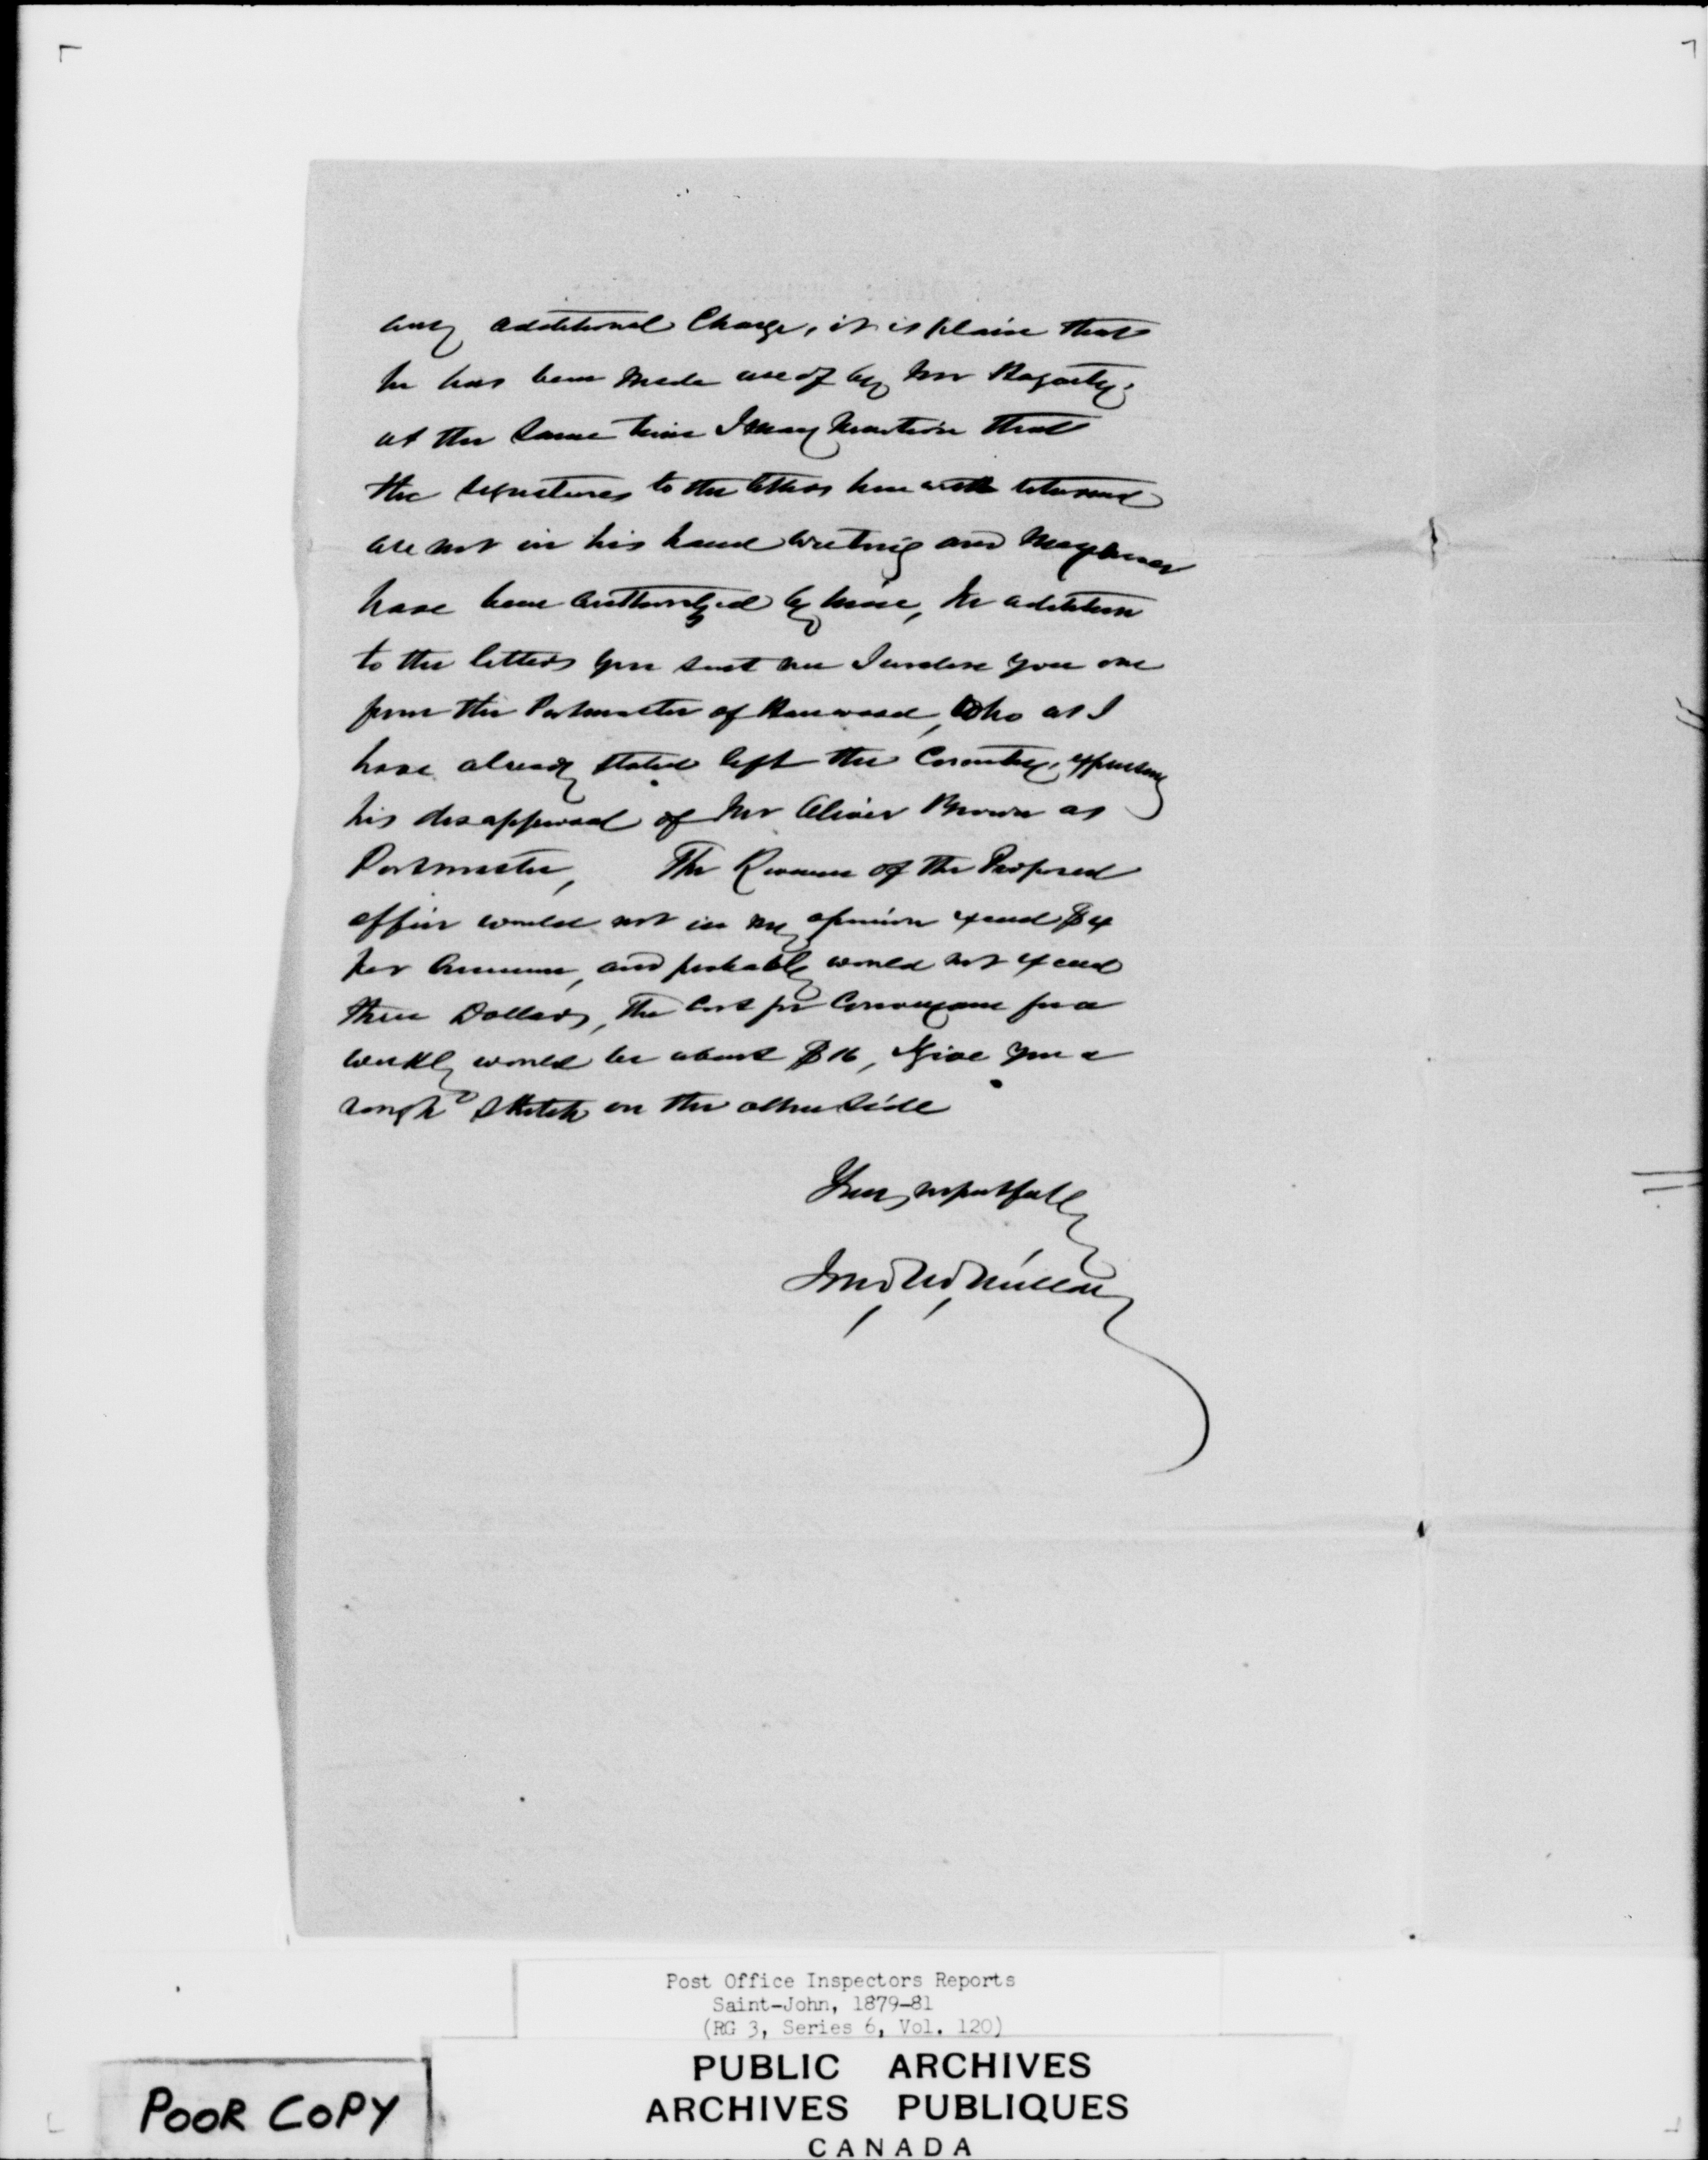 any additional Charge, it is plain that
he has been made use of by Mr Hagarty,
at the same time I may mention that
the signatures to the letters herewith returned
are not in his hand writing and may never
have been authorized by him, In addition
to the letters you sent me I enclose you one
from the Postmaster of Harwood, who as I
have already stated left the Country, expressing
his disapproval of Mr Oliver Brown as
Postmaster, The Revenue of the Proposed
office would not in my opinion exceed $4
per Annum, and probably would not exceed
three Dollars, the Cost for Conveyance for a
weekly would be about $16, I give you a
rough sketch on the other side
Yours respectfully
Post Office Inspectors Reports
Saint-John, 1879-81
(RG 3, Series 6, Vol. 120)
PUBLIC ARCHIVES
ARCHIVES PUBLIQUES
CANADA
POOR COPY